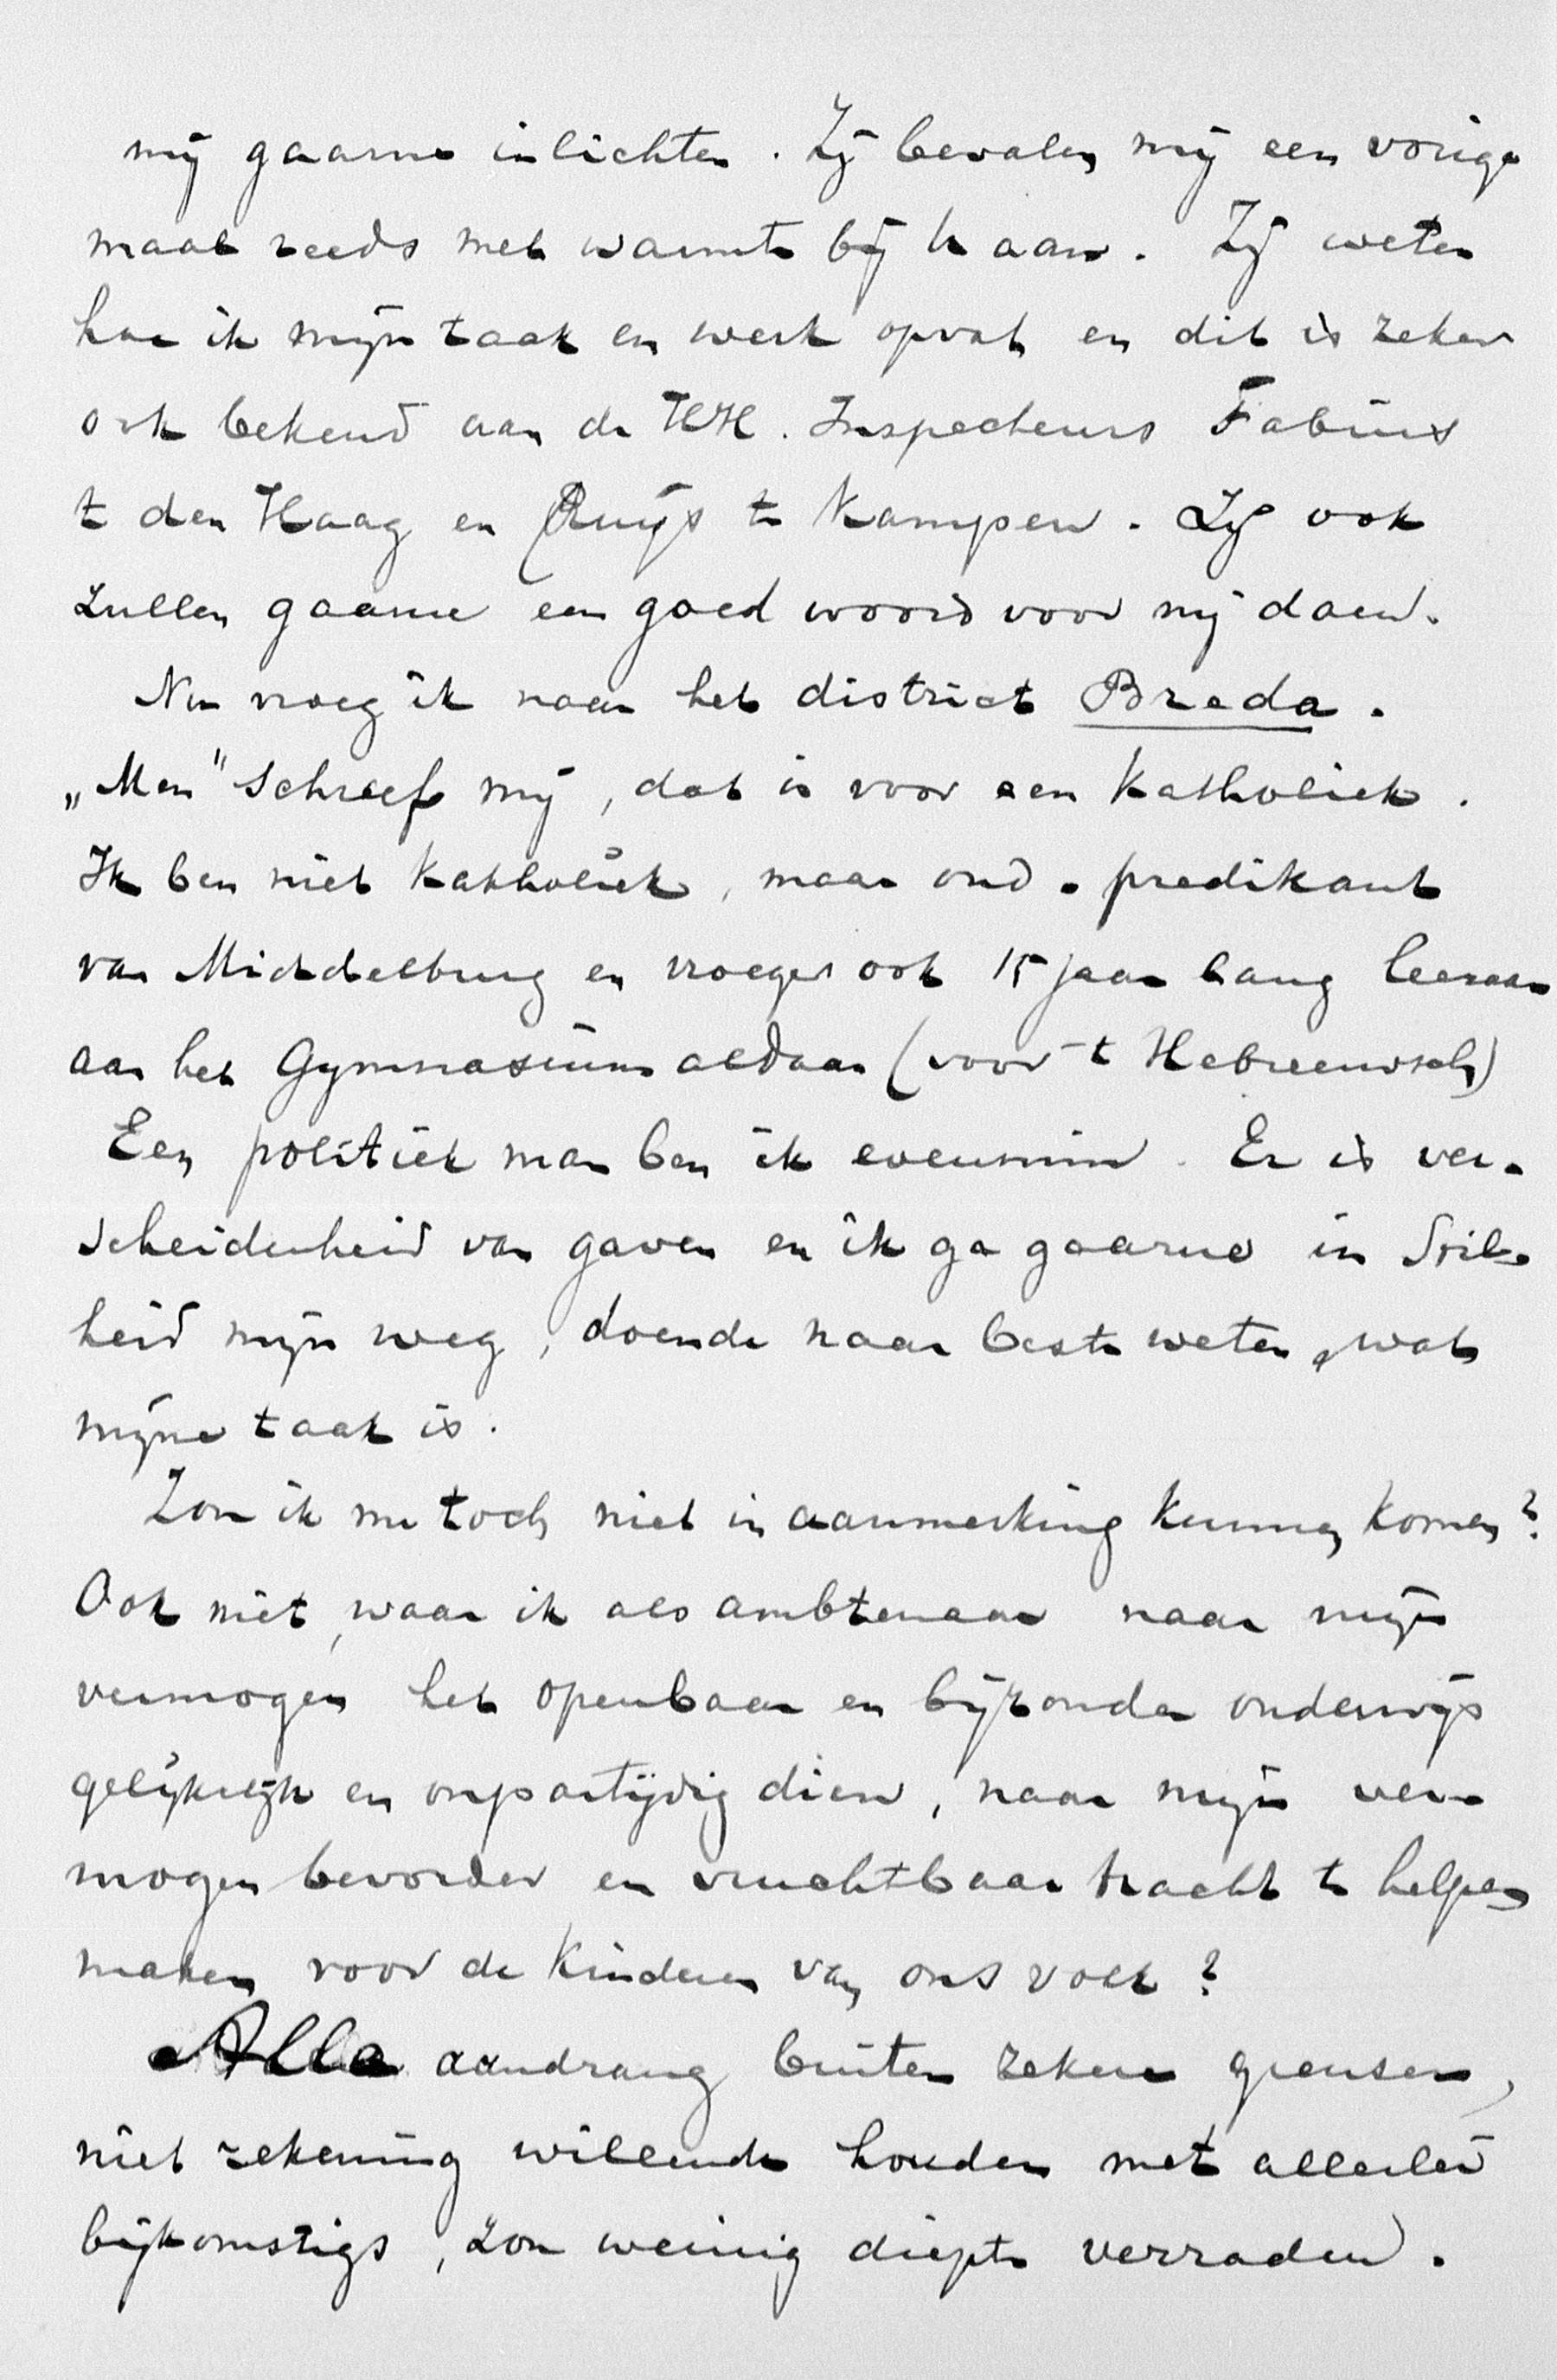 mij gaarne inlichten. Zij bevalen mij een vorige
maal reeds met warmte bij U aan. Zij weten
hoe ik mijn taak en werk opvat en dit is zeker
ook bekend aan de HH. Inspecteurs Fabius
te den Haag en Ruijs te Kampen. Zij ook
zullen gaarne een goed woord voor mij doen.
Nu vroeg ik naar het district Breda.
„Men" schreef mij, dat is voor een Katholiek.
Ik ben niet Katholiek, maar oud-predikant
van Middelburg en vroeger ook 15 jaar lang leeraar
aan het Gymnasium aldaar (voor 't Hebreeuwsch)
Een politiek man ben ik evenmin. Er is ver-
scheidenheid van gaven en ik ga gaarne in stil-
heid mijn weg, doende naar beste weten, wat
mijne taak is.
Zou ik nu toch niet in aanmerking kunnen komen?
Ook niet, waar ik als ambtenaar naar mijn
vermogen het openbaar en bijzonder onderwijs
gelijkelijk en onpartijdig dien, naar mijn ver-
mogen bevorder en vruchtbaar tracht te helpen
maken voor de Kinderen van ons volk?
Alle aandrang buiten zekere grensen,
niet rekening willende houden met allerlei
bijkomstigs, zou weinig diepte verraden.